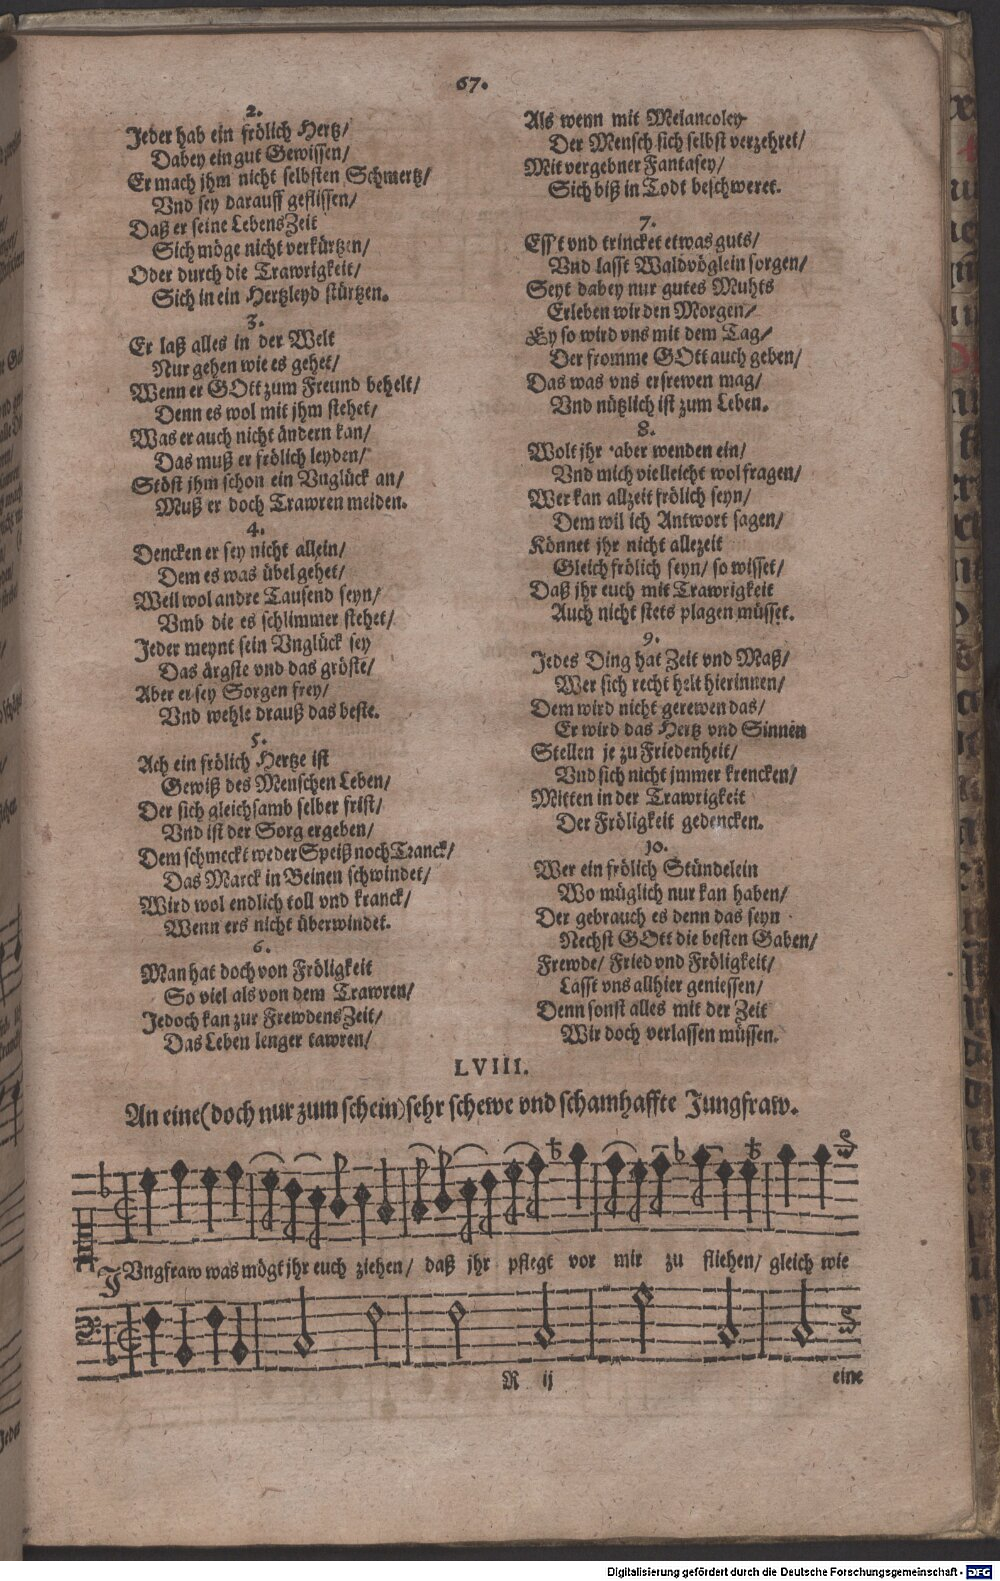 67.
2.
Jeder hab ein frölich Hertz/
Dabey ein gut Gewissen/
Er mach jhm nicht selbsten Schmertz/
Vnd sey darauff geflissen/
Daß er seine LebensZeit
Sich möge nicht verkürtzen/
Oder durch die Trawrigkeit/
Sich in ein Hertzleyd stürtzen.
3.
Er laß alles in der Welt
Nur gehen wie es gehet/
Wenn er GOtt zum Freund behelt/
Denn es wol mit jhm stehet/
Was er auch nicht ändern kan/
Das muß er frölich leyden/
Stöst jhm schon ein Vnglück an/
Muß er doch Trawren meiden.
4.
Dencken er sey nicht allein/
Dem es was übel gehet/
Weil wol andre Tausend seyn/
Vmb die es schlimmer stehet/
Jeder meynt sein Vnglück sey
Das ärgste vnd das gröste/
Aber er sey Sorgen frey/
Vnd wehle drauß das beste.
5.
Ach ein frölich Hertze ist
Gewiß des Menschen Leben/
Der sich gleichsamb selber frist/
Vnd ist der Sorg ergeben/
Dem schmeckt weder Speiß noch Tranck/
Das Marck in Beinen schwindet/
Wird wol endlich toll vnd kranck/
Wenn ers nicht überwindet.
6.
Man hat doch von Fröligkeit
So viel als von dem Trawren/
Jedoch kan zur FrewdensZeit/
Das Leben lenger tawren/
Als wenn mit Melancoley
Der Mensch sich selbst verzehret/
Mit vergebner Fantasey/
Sich biß in Todt beschweret.
7.
Ess't vnd trincket etwas guts/
Vnd lasst Waldvöglein sorgen/
Seyt dabey nur gutes Muhts
Erleben wir den Morgen/
Ey so wird vns mit dem Tag/
Der fromme GOtt auch geben/
Das was vns erfrewen mag/
Vnd nützlich ist zum Leben.
8.
Wolt jhr aber wenden ein/
Vnd mich vielleicht wol fragen/
Wer kan allzeit frölich seyn/
Dem wil ich Antwort sagen/
Könnet jhr nicht allezeit
Gleich frölich seyn/ so wisset/
Daß jhr euch mit Trawrigkeit
Auch nicht stets plagen müsset.
9.
Jedes Ding hat Zeit vnd Maß/
Wer sich recht helt hierinnen/
Dem wird nicht gerewen das/
Er wird das Hertz vnd Sinnen
Stellen je zu Friedenheit/
Vnd sich nicht jmmer krencken/
Mitten in der Trawrigkeit
Der Fröligkeit gedencken.
10.
Wer ein frölich Stündelein
Wo müglich nur kan haben/
Der gebrauch es denn das seyn
Nechst GOtt die besten Gaben/
Frewde/ Fried vnd Fröligkeit/
Lasst vns allhier geniessen/
Denn sonst alles mit der Zeit
Wir doch verlassen müssen.
LVIII.
An eine (doch nur zum schein) sehr schewe vnd schamhaffte Jungfraw.
JVngfraw was mögt jhr euch ziehen/ daß jhr pflegt vor mir zu fliehen/ gleich wie
R ij
eine
Digitalisierung gefördert durch die Deutsche Forschungsgemeinschaft - DFG